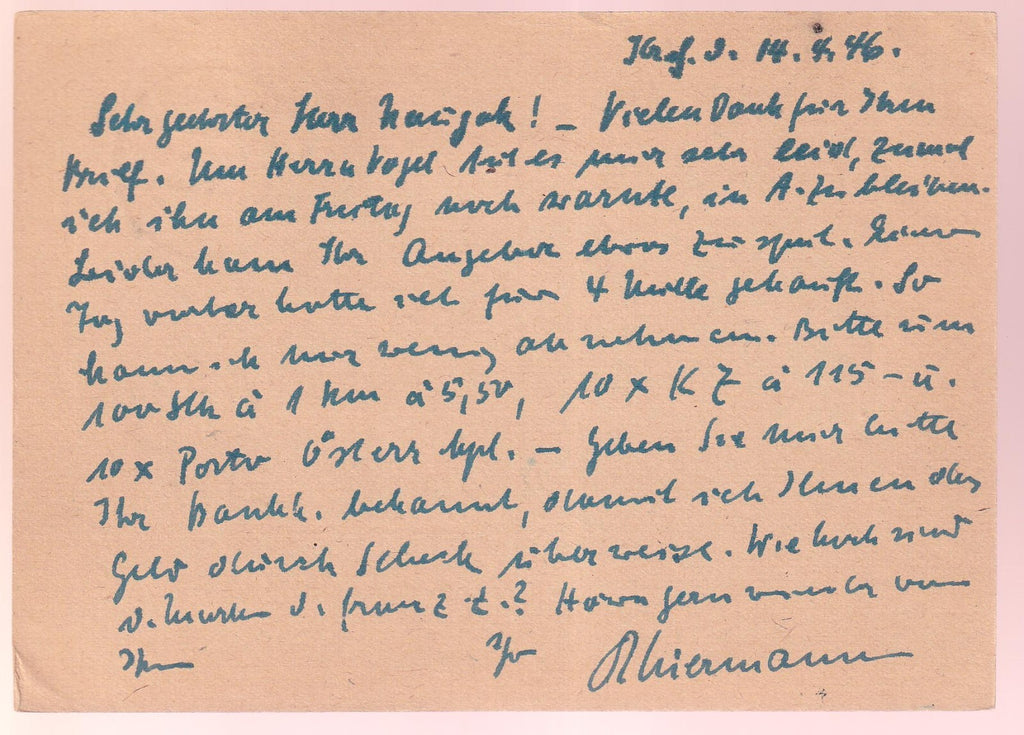 d. 14.4.46.
Sehr geehrter Herr ! – Vielen Dank für Ihren
Brief. Um Herrn Vogel tut es mir sehr leid, zumal
ich ihn am Freitag noch warnte, in A. zu bleiben.
Leider kam Ihr Angebot etwas zu spät. Einen
Tag vorher hatte ich für 4 Mille gekauft. So
kann ich nur wenig abnehmen. Bitte um
100 Stk à 1 km à 5,50, 10 x K Z à 115 – u.
10 x Porto Österr kpl. – Geben Sie mir bitte
Ihr Bankk. bekannt, damit ich Ihnen das
Geld durch Scheck überweise. Wie hoch sind
d. Marken d. franz Z.? Höre gern wieder von
Ihnen Ihr